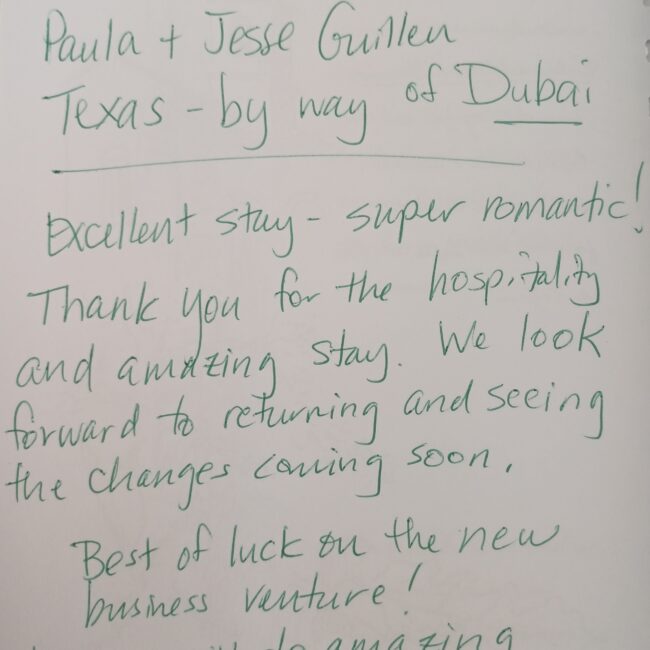 Paula + Jesse Guillen
Texas - by way of Dubai
Excellent stay - super romantic!
Thank you for the hospitality
and amazing stay. We look
forward to returning and seeing
the changes coming soon.
Best of luck on the new
business venture!
amazing